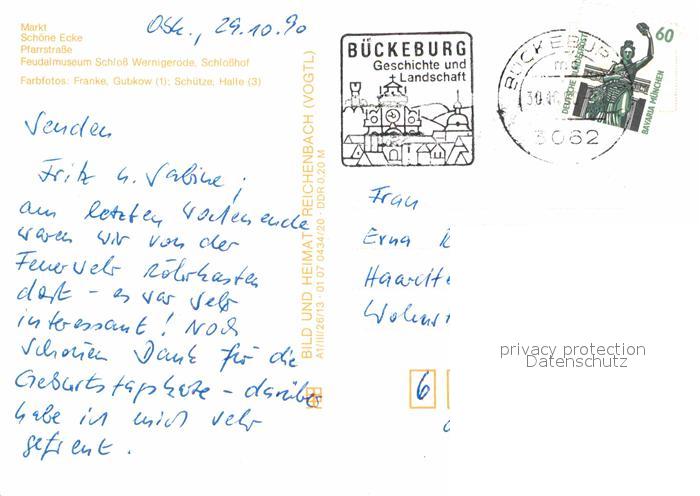 Markt
Schöne Ecke
Pfarrstraße
Feudalmuseum Schloß Wernigerode, Schloßhof
Farbfotos: Franke, Gubkow (1); Schütze, Halle (3)
29.10.90
Senden
Fritz u. Sabine;
am letzten Wochenende
waren wir von der
Feuerwehr Röhrkasten
dort – es war sehr
interessant! Noch
schönen Dank für die
Geburtstagskarte – darüber
habe ich mich sehr
gefreut.
BILD UND HEIMAT REICHENBACH (VOGTL)
A1/III/26/13 · 01 07 0434/20 · DDR 0,20 M
BÜCKEBURG
Geschichte und
Landschaft
BÜCKEBUR
30.
3062
60
DEUTSCHE BUNDESPOST
BAVARIA MÜNCHEN
Frau
Erna
6
privacy protection
Datenschutz